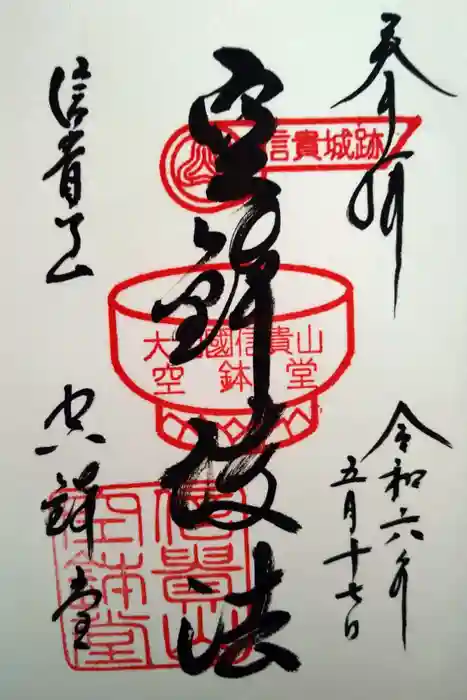 奉拝
令和六年
五月十七日
信貴城跡
空鉢護法
大和國信貴山
空鉢堂
信貴山
空鉢堂
信貴山
空鉢堂